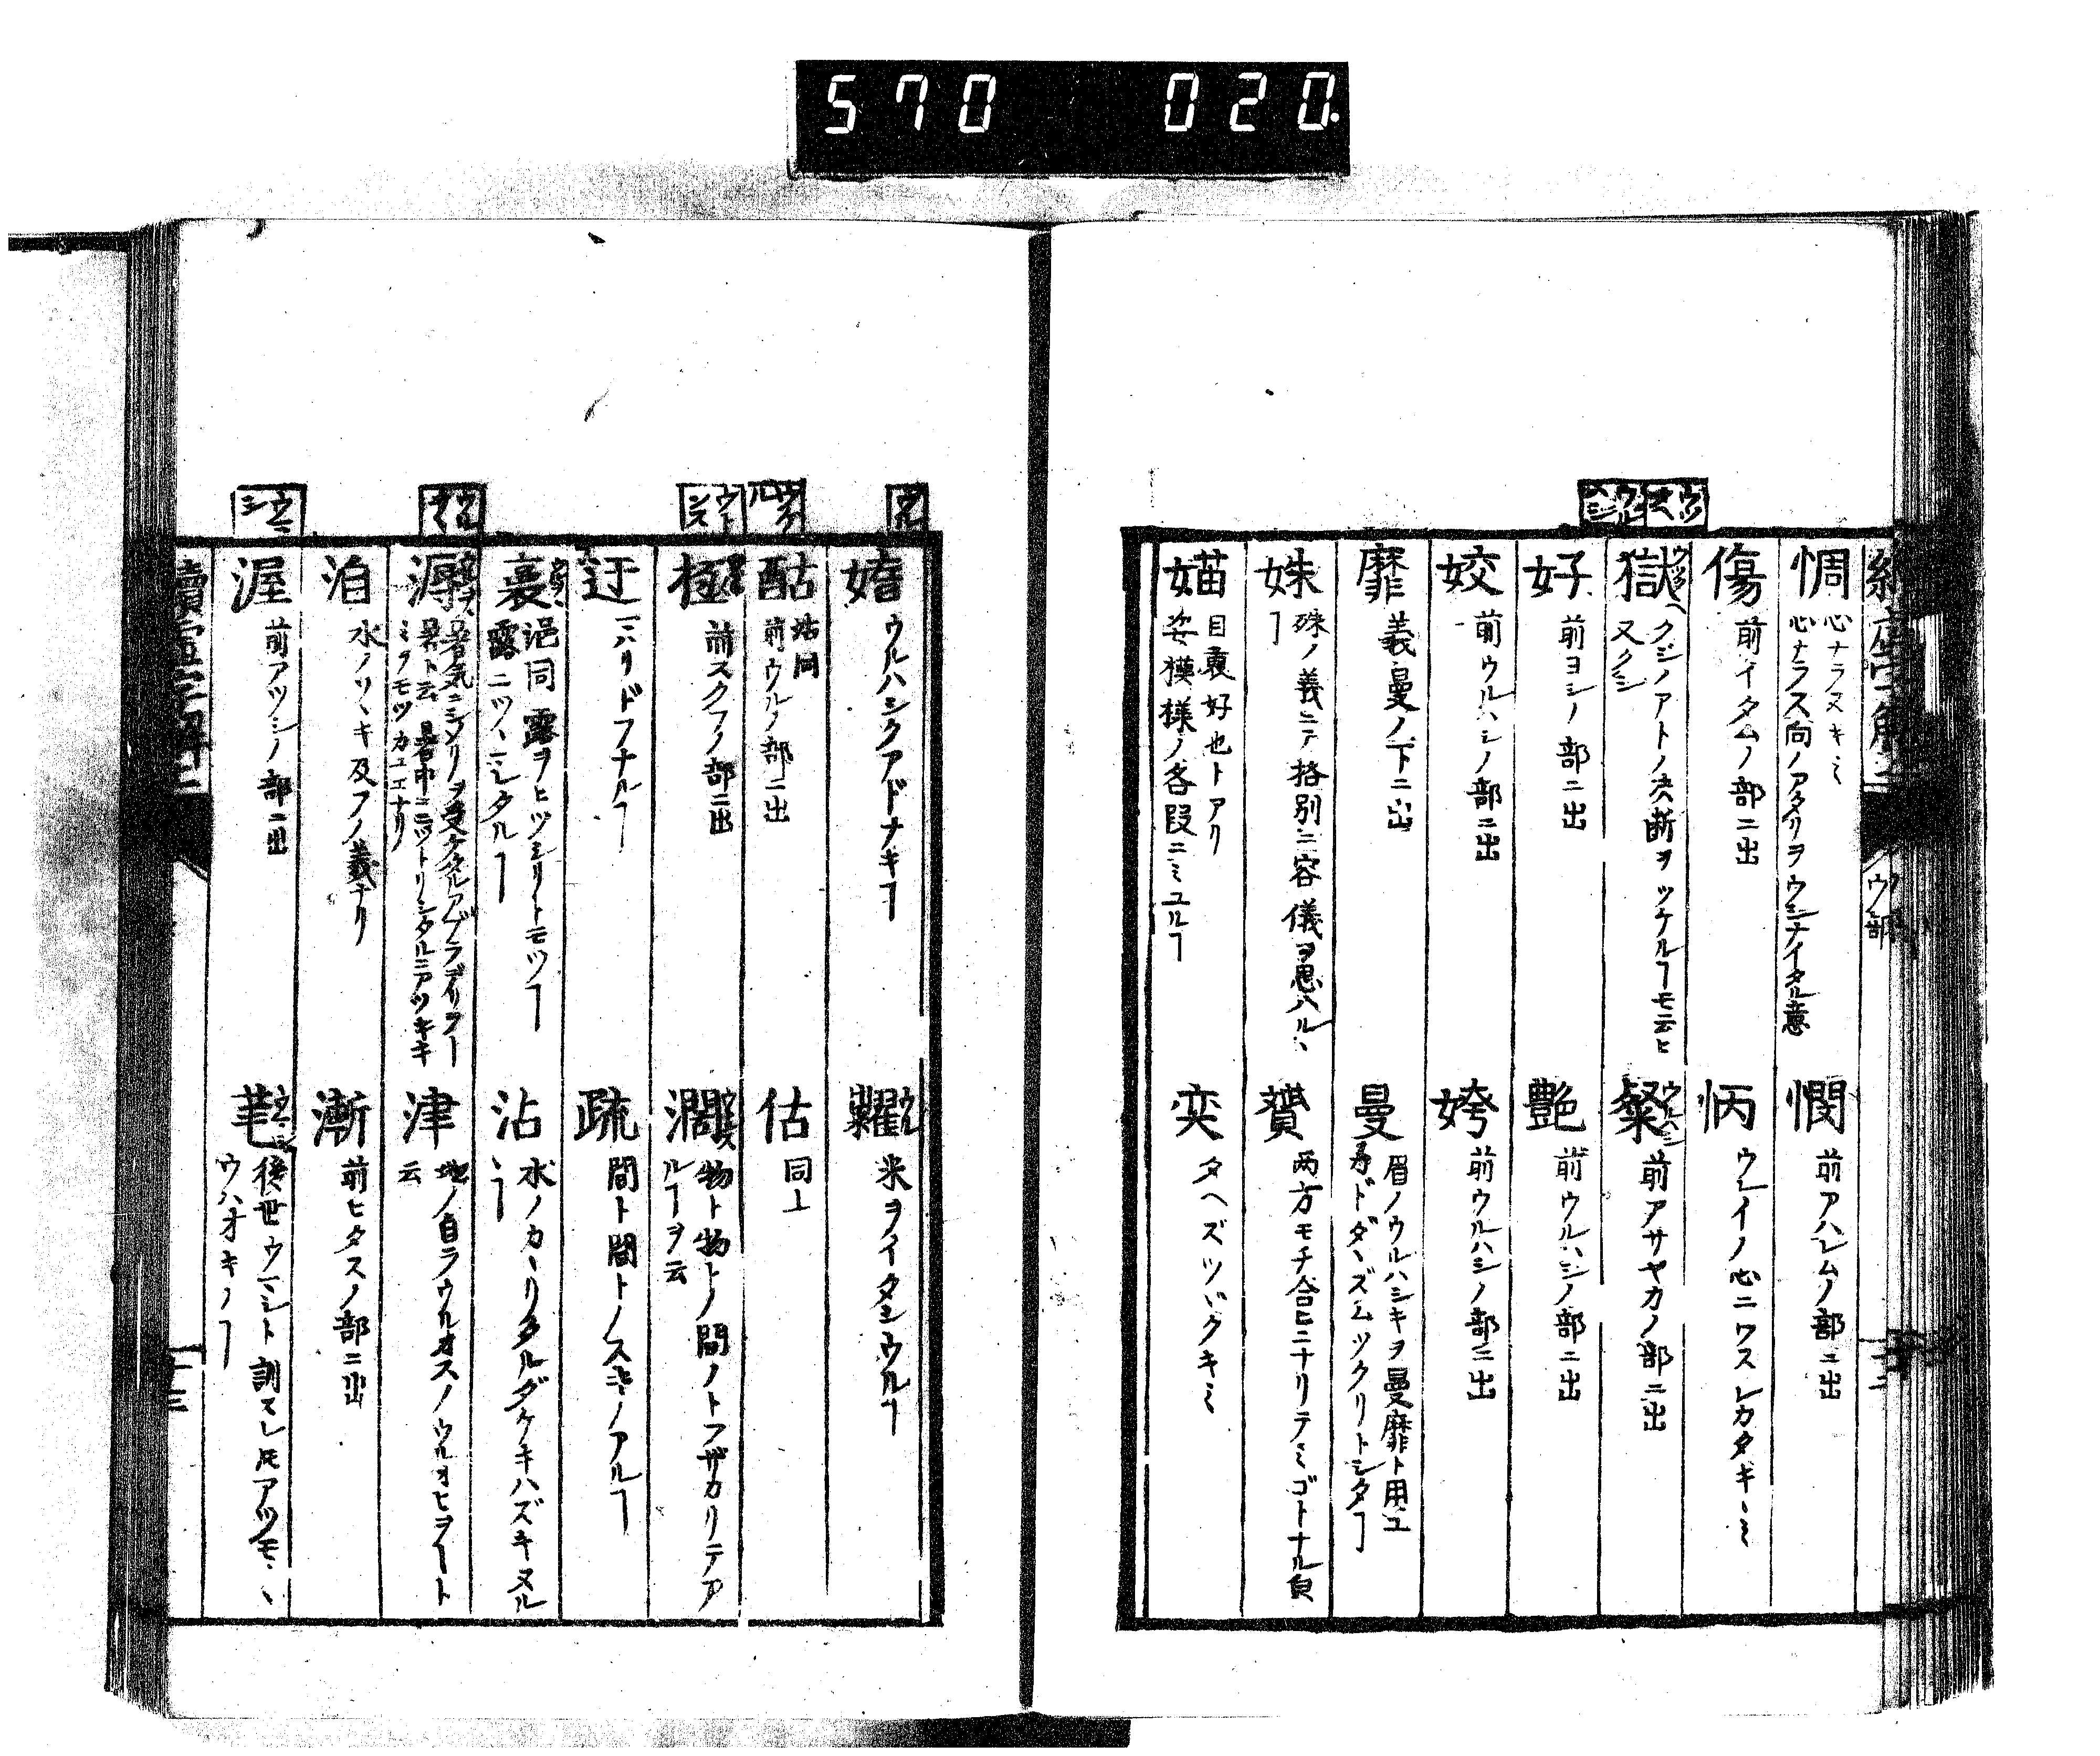 570 020.
ウ部
惆 心ナラヌキミ
心ナラス向ノアタリヲウシナイタル意
憫 前アハレムノ部ニ出
傷 前イタムノ部ニ出
怲 ウレイノ心ニワスレカタキヽミ
獄 ヘクジノアトノ决断ヲツケルヿモ云ヒ
又クシ
粲 前アサヤカノ部ニ出
好 前ヨシノ部ニ出
艶 前ウルハシノ部ニ出
姣 前ウルハシノ部ニ出
姱 前ウルハシノ部ニ出
靡 義曼ノ下ニ出
曼 眉ノウルハシキヲ曼靡ト用ユ
姝 殊ノ義ニテ格別ニ容儀ヲ思ハルヽ
ヿ
贇 両方モチ合ヒニナリテミゴトナル皃
媌 目裏好也トアリ
姿模様ノ各段ニミユルヿ
奕 タヘズツヾクキミ
媋 ウルハシクアドナキヿ
糶 米ヲイタシウルヿ
酤 沽同
前ウルノ部ニ出
估 同上
極 前スクフノ部ニ出
濶 物ト物トノ間ノトフザカリテア
ルヿヲ云
迂 マハリドフナルヿ
疏 間ト間トノスキノアルヿ
裛 浥同 露ヲヒツシリトモツヿ
露ニツヽミシタルヿ
沾 水ノカヽリタルダケキハズキヌル
ヽヿ
溽 暑気ニシメリヲ受タルアブラデイリヲ
津 地ノ自ラウルオスノウルヲヒヲート
云
洎 水ノソヽキ及フノ義ナリ
漸 前ヒタスノ部ニ出
渥 前アツシノ部ニ出
芼 後世ウマシト訓スレ𪜈アツモヽ
ウハオキノヿ
十三